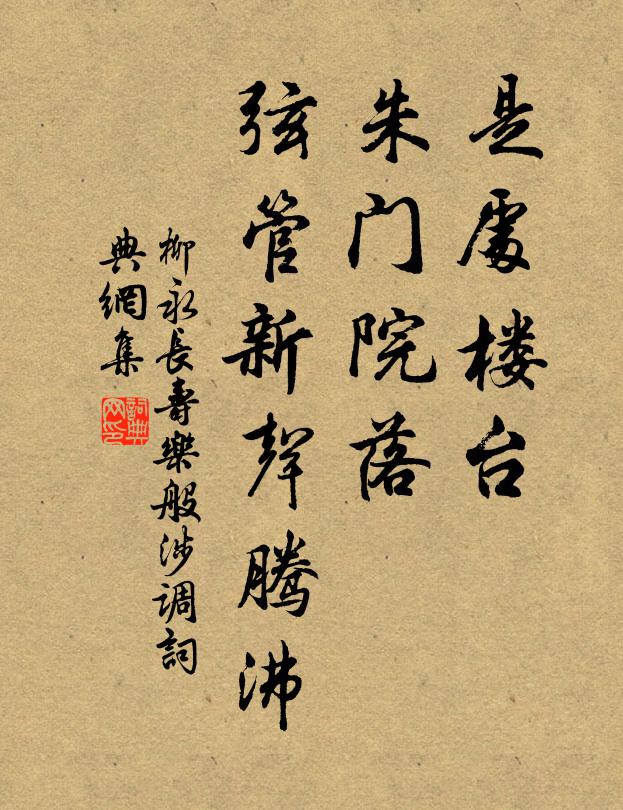 是處楼台
朱门院落
弦管新聲腾沸
柳永長壽樂般涉调詞
典網集
詞典網印